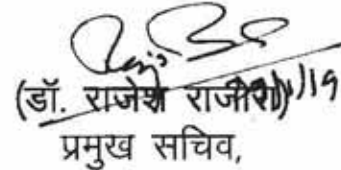 (डॉ. राजेश राजौरा)
प्रमुख सचिव,